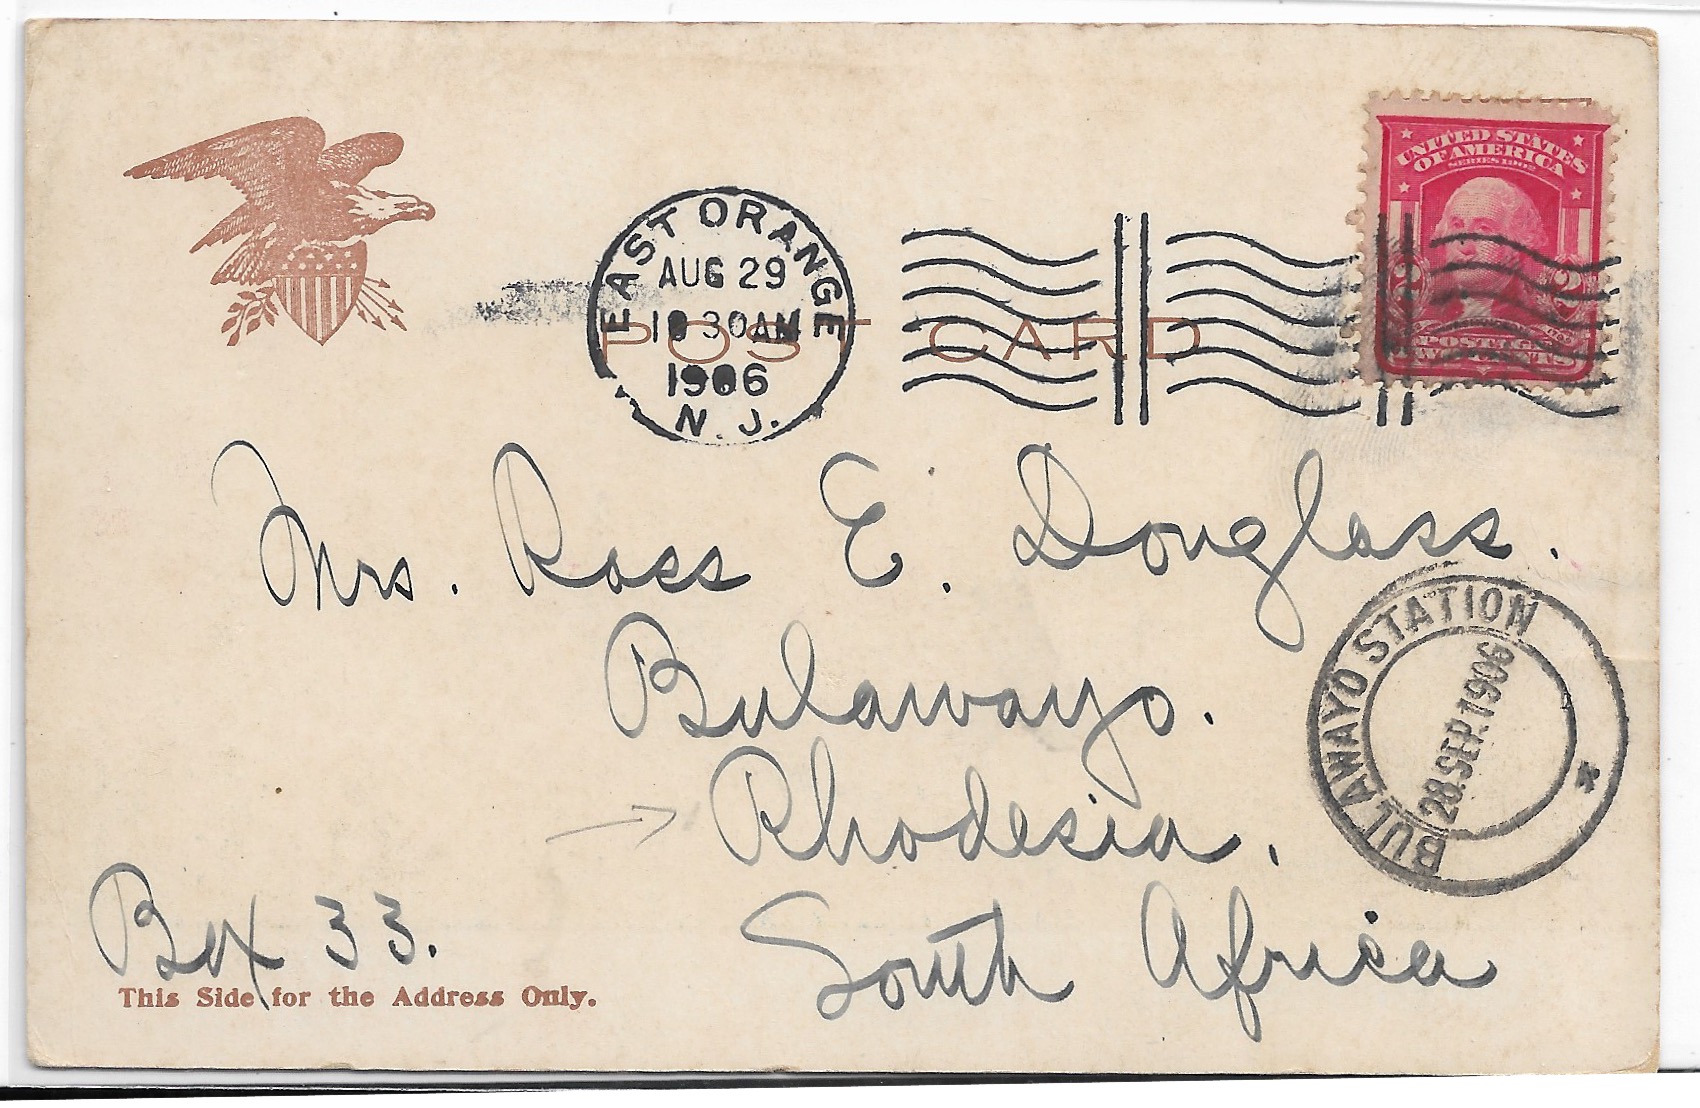 UNITED STATES
OF AMERICA
SERIES 1902
2 2
POSTAGE
EAST ORANGE
AUG 29
10 30 AM
1906
N. J.
POST CARD
Mrs. Ross E. Douglass.
Bulawayo.
Rhodesia.
South Africa
BULAWAYO STATION
28.SEP.1906
Box 33.
This Side for the Address Only.